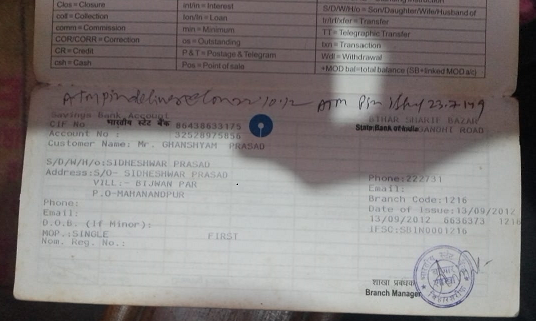 Clos = Closure
coll = Collection
comm = Commission
COR/CORR = Correction
CR = Credit
csh = Cash
int/in = Interest
lon/ln = Loan
min = Minimum
os = Outstanding
P & T = Postage & Telegram
Pos = Point of sale
S/D/W/H/o = Son/Daughter/Wife/Husband of
tr/trf/xfer = Transfer
TT = Telegraphic Transfer
txn = Transaction
Wdl = Withdrawal
+MOD bal = total balance (SB+linked MOD a/c)
ATM Pin
Savings Bank Account
भारतीय स्टेट बैंक
CIF No 86438633175
Account No : 32528975856
Customer Name: Mr. GHANSHYAM PRASAD
BIHAR SHARIF BAZAR
State Bank of India
GANDHI ROAD
S/D/W/H/o: SIDHESHWAR PRASAD
Address: S/O- SIDHESHWAR PRASAD
VILL:- BIJWAN PAR
P.O-MAHANANDPUR
Phone:
Email:
D.O.B. (If Minor):
MOP.: SINGLE FIRST
Nom. Reg. No.:
Phone: 222731
Email:
Branch Code: 1216
Date of Issue: 13/09/2012
13/09/2012 6636373 1216
IFSC: SBIN0001216
शाखा प्रबंधक
Branch Manager